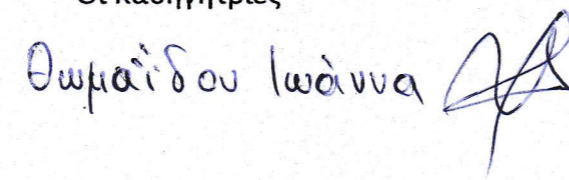 Οι καθηγήτριες
Θωμαΐδου Ιωάννα